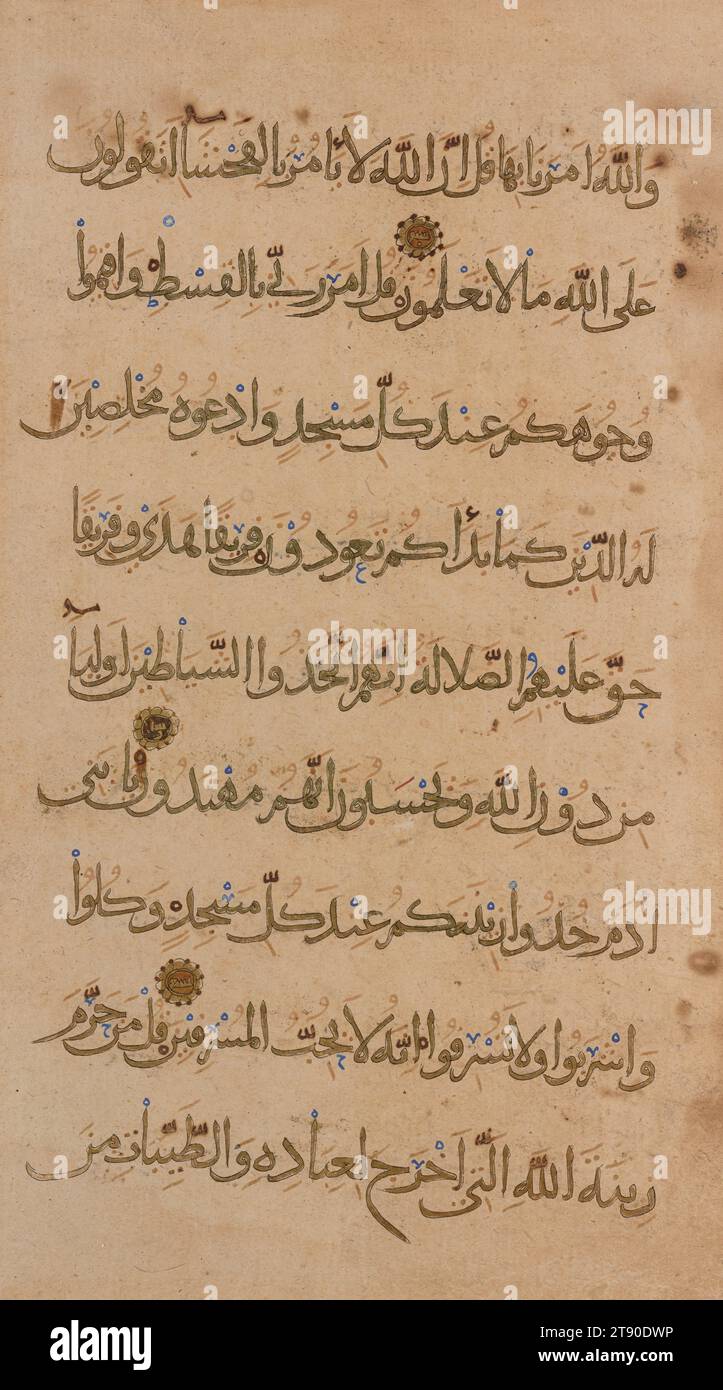 وَاللَّهُ أَمَرَنَا بِهَا قُلْ إِنَّ اللَّهَ لَا يَأْمُرُ بِالْفَحْشَاءِ أَتَقُولُونَ
عَلَى اللَّهِ مَا لَا تَعْلَمُونَ قُلْ أَمَرَ رَبِّي بِالْقِسْطِ وَأَقِيمُوا
وُجُوهَكُمْ عِنْدَ كُلِّ مَسْجِدٍ وَادْعُوهُ مُخْلِصِينَ
لَهُ الدِّينَ كَمَا بَدَأَكُمْ تَعُودُونَ فَرِيقًا هَدَى وَفَرِيقًا
حَقَّ عَلَيْهِمُ الضَّلَالَةُ إِنَّهُمُ اتَّخَذُوا الشَّيَاطِينَ أَوْلِيَاءَ
مِنْ دُونِ اللَّهِ وَيَحْسَبُونَ أَنَّهُمْ مُهْتَدُونَ يَا بَنِي
آدَمَ خُذُوا زِينَتَكُمْ عِنْدَ كُلِّ مَسْجِدٍ وَكُلُوا
وَاشْرَبُوا وَلَا تُسْرِفُوا إِنَّهُ لَا يُحِبُّ الْمُسْرِفِينَ قُلْ مَنْ حَرَّمَ
زِينَةَ اللَّهِ الَّتِي أَخْرَجَ لِعِبَادِهِ وَالطَّيِّبَاتِ مِنَ
alamy
Image ID: 2T90DWP
www.alamy.com